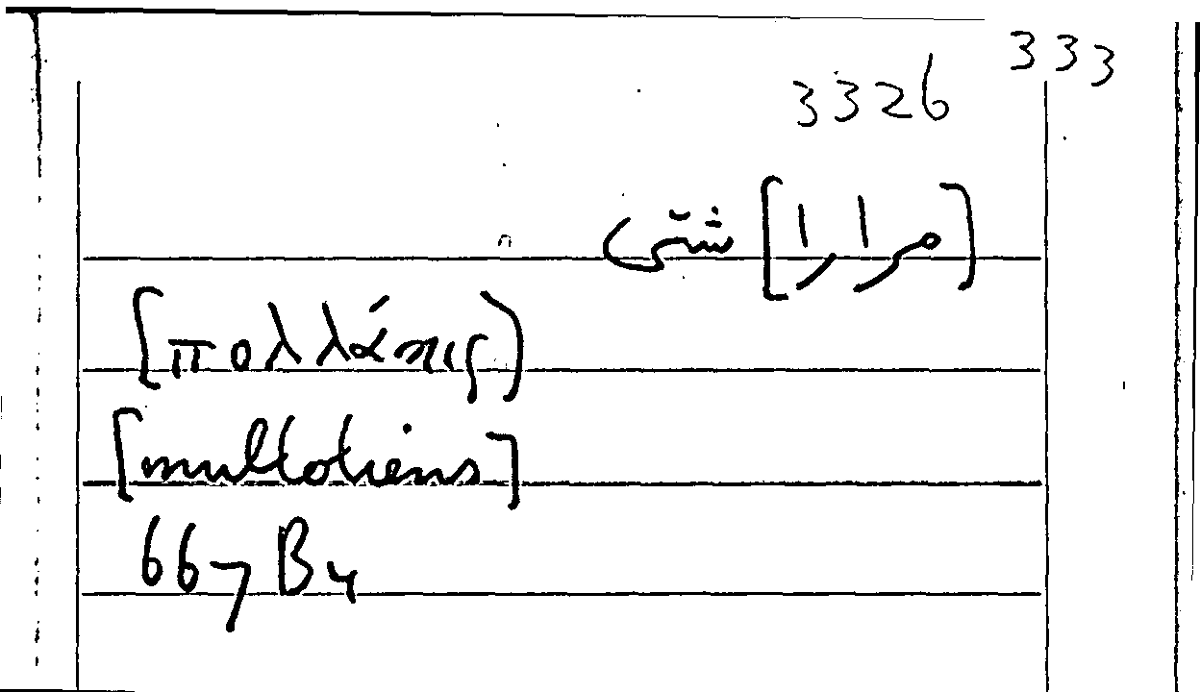 333
3326
[مرارا] شتى
[πολλάκις]
[multotiens]
667 B4